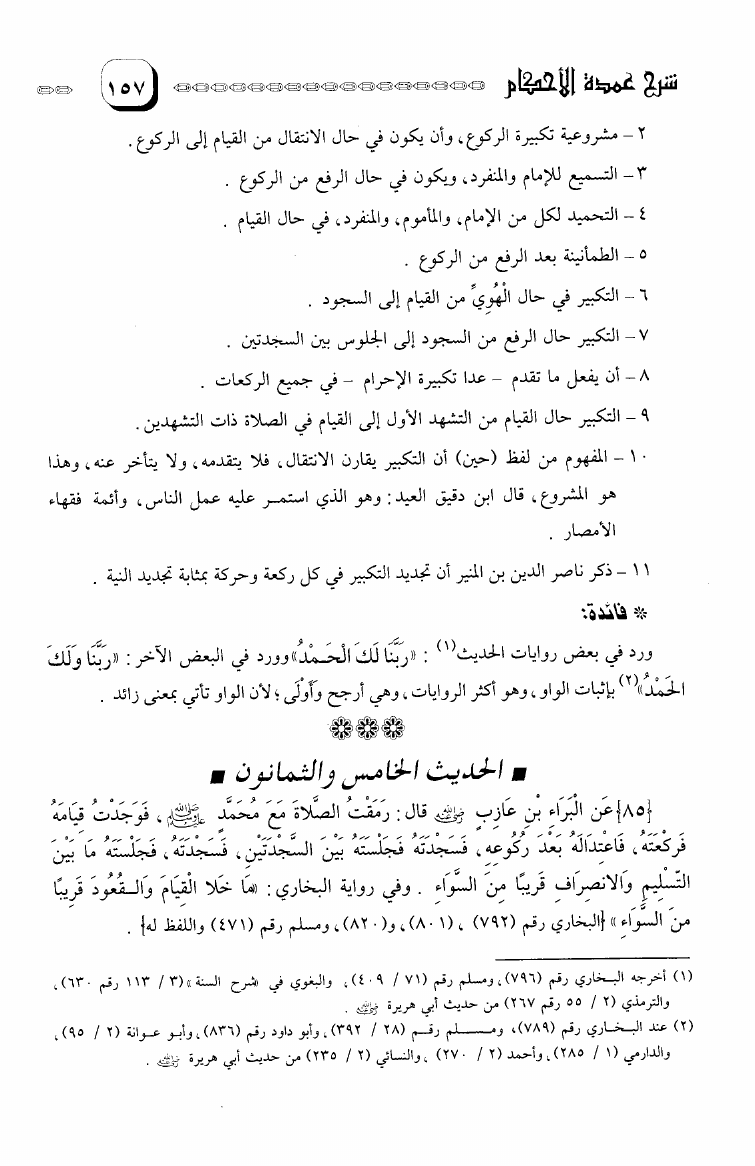 شرح عمدة الأحكام ١٥٧
٢ – مشروعية تكبيرة الركوع، وأن يكون في حال الانتقال من القيام إلى الركوع.
٣ – التسميع للإمام والمنفرد، ويكون في حال الرفع من الركوع .
٤ – التحميد لكل من الإمام، والمأموم، والمنفرد، في حال القيام .
٥ – الطمأنينة بعد الرفع من الركوع .
٦ – التكبير في حال الْهُوِيِّ من القيام إلى السجود .
٧ – التكبير حال الرفع من السجود إلى الجلوس بين السجدتين .
٨ – أن يفعل ما تقدم – عدا تكبيرة الإحرام – في جميع الركعات .
٩ – التكبير حال القيام من التشهد الأول إلى القيام في الصلاة ذات التشهدين.
١٠ – المفهوم من لفظ (حين) أن التكبير يقارن الانتقال، فلا يتقدمه، ولا يتأخر عنه، وهذا
هو المشروع، قال ابن دقيق العيد: وهو الذي استمر عليه عمل الناس، وأئمة فقهاء
الأمصار .
١١ – ذكر ناصر الدين بن المنير أن تجديد التكبير في كل ركعة وحركة بمثابة تجديد النية .
* فائدة:
ورد في بعض روايات الحديث(١) : «رَبَّنَا لَكَ الْحَمْدُ» وورد في البعض الآخر : «رَبَّنَا وَلَكَ
الحَمْدُ»(٢) بإثبات الواو، وهو أكثر الروايات، وهي أرجح وَأَوْلَى؛ لأن الواو تأتي بمعنى زائد .
***
■ الحديث الخامس والثمانون ■
{٨٥} عَنِ الْبَرَاءِ بْنِ عَازِبٍ رضي الله عنه قال: رَمَقْتُ الصَّلاةَ مَعَ مُحَمَّدٍ ﷺ، فَوَجَدْتُ قِيَامَهُ
فَرَكْعَتَهُ، فَاعْتِدَالَهُ بَعْدَ رُكُوعِهِ، فَسَجْدَتَهُ فَجَلْسَتَهُ بَيْنَ السَّجْدَتَيْنِ، فَسَجْدَتَهُ، فَجَلْسَتَهُ مَا بَيْنَ
التَّسْلِيمِ وَالانْصِرَافِ قَرِيبًا مِنَ السَّوَاءِ . وفي رواية البخاري: «مَا خَلا الْقِيَامَ وَالْقُعُودَ قَرِيبًا
مِنَ السَّوَاءِ» {البخاري رقم (٧٩٢) ، (٨٠١)، و(٨٢٠)، ومسلم رقم (٤٧١) واللفظ له} .
(١) أخرجه البخاري رقم (٧٩٦)، ومسلم رقم (٧١ / ٤٠٩)، والبغوي في «شرح السنة» (٣ / ١١٣ رقم ٦٣٠)،
والترمذي (٢ / ٥٥ رقم ٢٦٧) من حديث أبي هريرة رضي الله عنه .
(٢) عند البخاري رقم (٧٨٩)، ومسلم رقم (٢٨ / ٣٩٢)، وأبو داود رقم (٨٣٦)، وأبو عوانة (٢ / ٩٥)،
والدارمي (١ / ٢٨٥)، وأحمد (٢ / ٢٧٠) ، والنسائي (٢ / ٢٣٥) من حديث أبي هريرة رضي الله عنه .